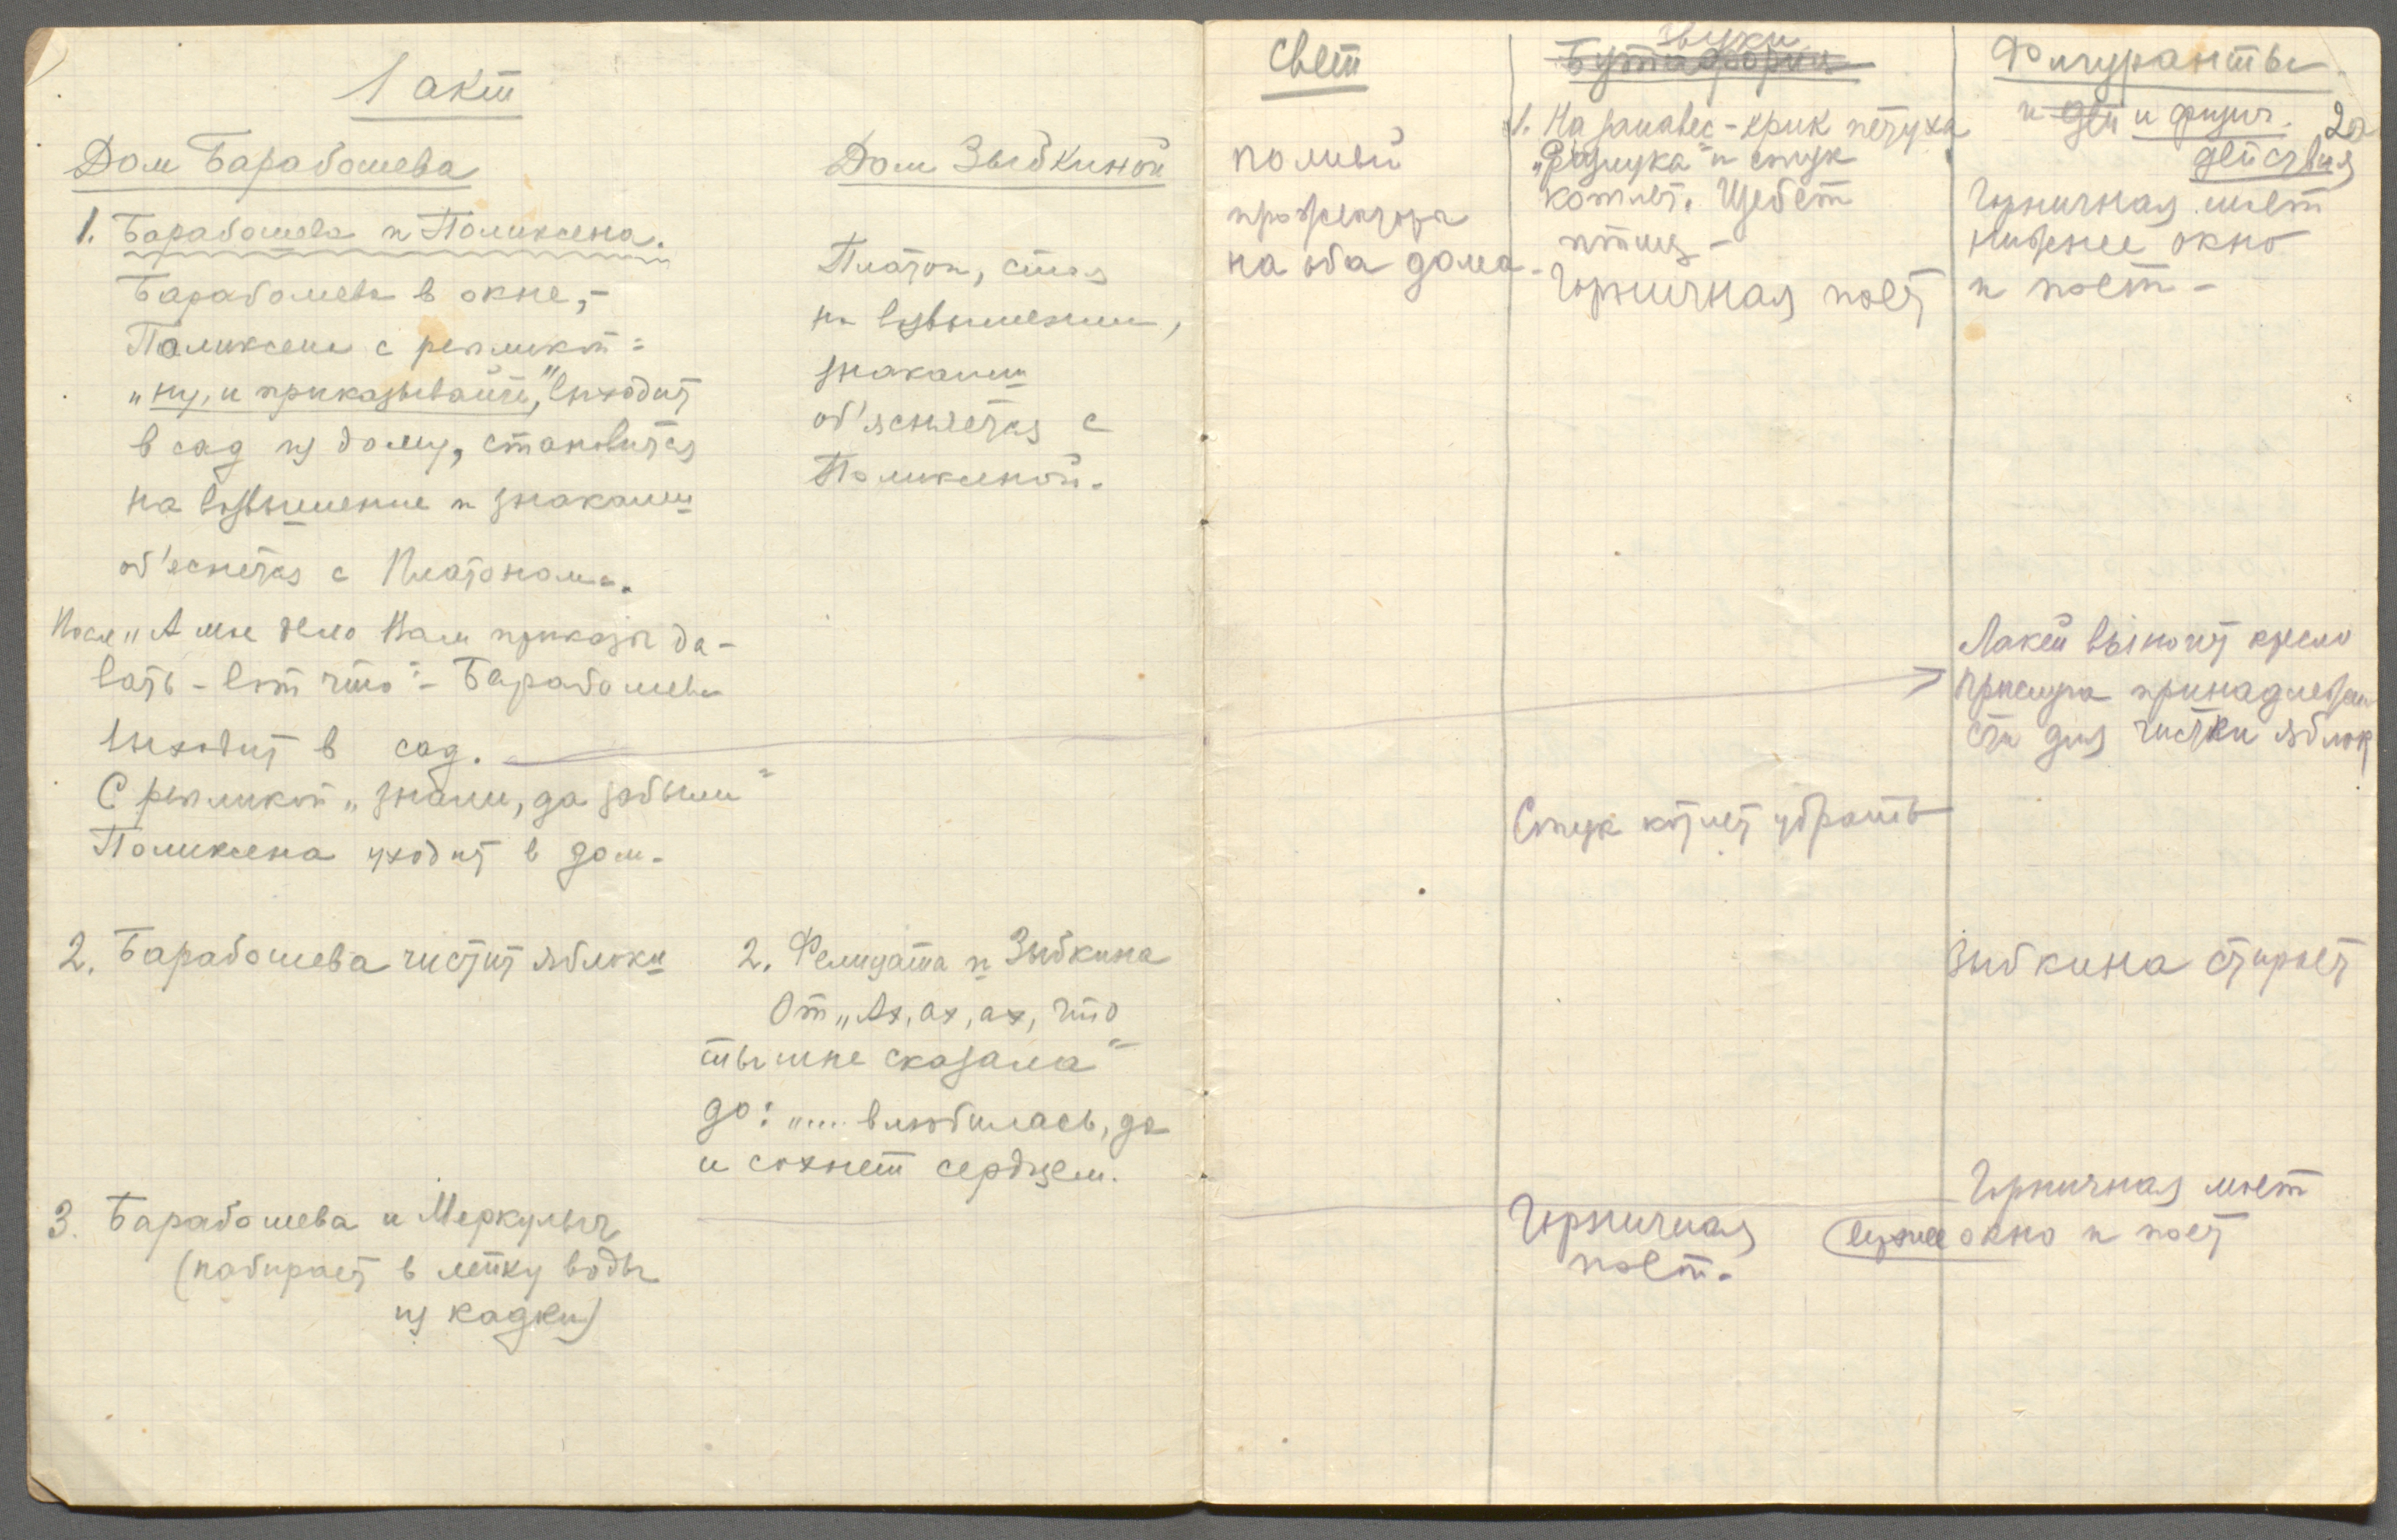 1 акт
Дом Барабошева
1. Барабошева и Поликсена.
Барабошева в окне, –
Поликсена с реплики:
„ну, и приказывайте", выходит
в сад из дому, становится
на возвышение и знаками
об'еснетая с Платоном.
После „А мне дело Вам приказы да-
вать – вот что" – Барабошева
выходит в сад.
С репликой „знали, да забыли"
Поликсена уходит в дом.
2. Барабошева чистит яблоки
3. Барабошева и Меркулыч
(набирает в лейку воды
из кадки)
Дом Зыбкиной
Платон, стоя
на возвышении,
знаками
об'ясняется с
Поликсеной.
2. Фелицата и Зыбкина
От „Ах, ах, ах, что
ты мне сказала"
до: „.... влюбилась, да
и сохнет сердцем.
Свет
полный
прожектора
на оба дома.
Звуки
Бутафория
1. На занавес – крик петуха
„Разлука" и стук
котлет. Щебет
птиц –
Горничная поет
Стук котлет убрать
Горничная
поет.
Фигуранты
и дей и физич. 2а
действия
Горничная моет
нижнее окно
и поет –
Лакей выносит кресло
прислуга принадлежно
сти для чистки яблок
Зыбкина стирает
Горничная моет
верхнее окно и поет